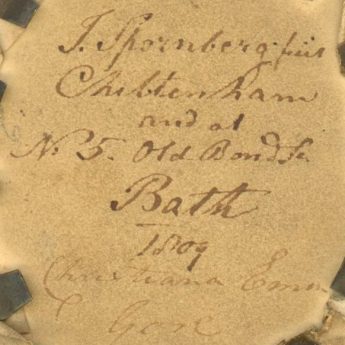 J. Spornberg fiit
Chiltenham
and at
No 5. Old Bond St
Bath
1809
Christiana Emm
Gore